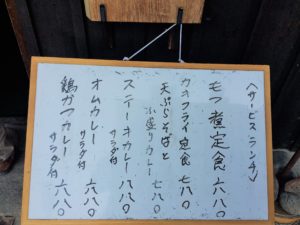 〈サービスランチ〉
モツ煮定食 六八〇
カキフライ定食 七八〇
天ぷらそばと
小盛りカレー 七八〇
ステーキカレー 八八〇
サラダ付
オムカレー 六八〇
サラダ付
鶏カツカレー 六八〇
サラダ付